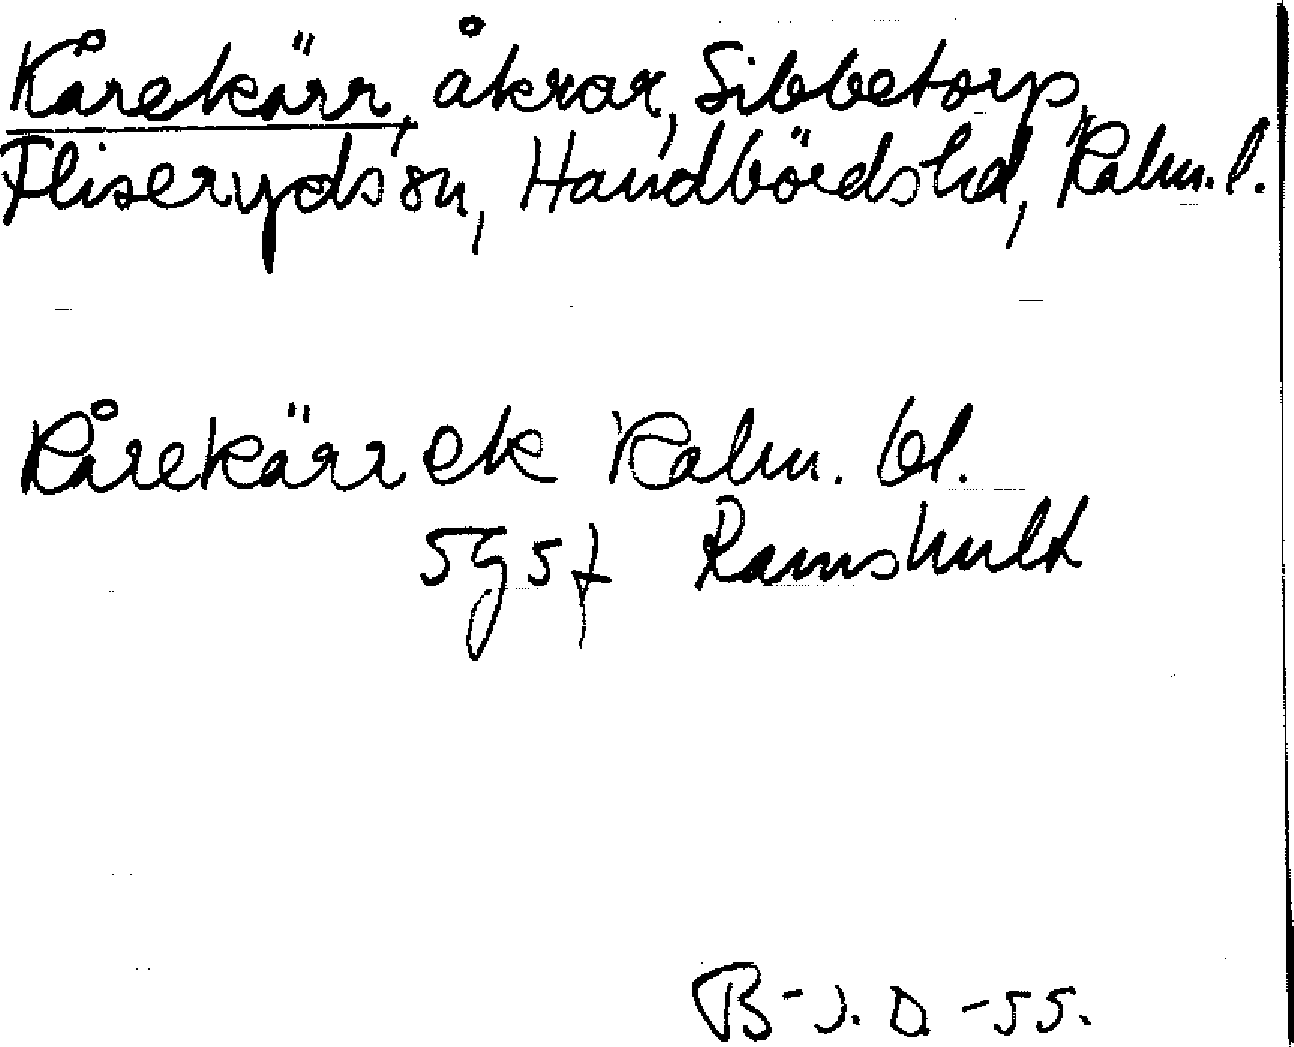 Kårekärr, åkrar, Sibbetorp,
Fliseryds sn, Handbörds hd, Kalm. l.
Kårekärr ek Kalm. bl.
5g5f Ramshult
B-J. D. -55.